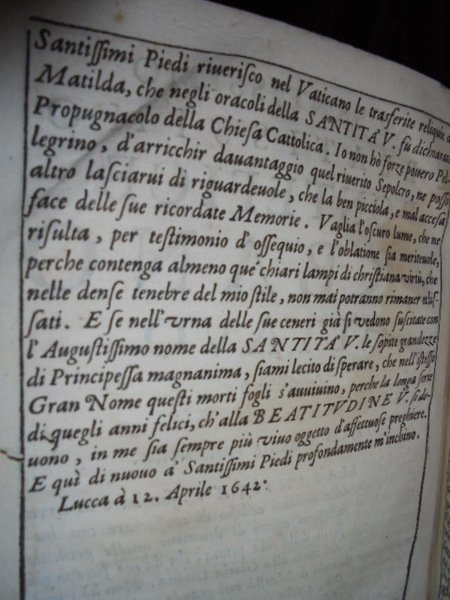 Santiſſimi Piedi riueriſco nel Vaticano le trasferite reliquie
Matilda, che negli oracoli della SANTITA' V. fù dichiarata
Propugnacolo della Chieſa Cattolica. Io non hò forze pouero Pel-
legrino, d'arricchir dauantaggio quel riuerito Sepolcro, ne poſſo
altro laſciarui di riguardeuole, che la ben picciola, e mal acceſa
face delle ſue ricordate Memorie. Vaglia l'oſcuro lume, che ne
riſulta, per teſtimonio d'oſſequio, e l'oblatione ſia meriteuole,
perche contenga almeno que' chiari lampi di chriſtiana virtù, che
nelle denſe tenebre del mio ſtile, non mai potranno rimaner
ſati. E ſe nell'vrna delle ſue ceneri già ſi vedono ſuſcitate con
l'Auguſtiſſimo nome della SANTITA' V. le ſopite grandezze
di Principeſſa magnanima, ſiami lecito di ſperare, che nell'iſteſſo
Gran Nome queſti morti fogli s'auuiuino, perche la longa ſerie
di quegli anni felici, ch'alla BEATITVDINE V. ſi
uono, in me ſia ſempre più viuo oggetto d'affettuoſe preghiere.
E quì di nuouo a' Santiſſimi Piedi profondamente m'inchino.
Lucca à 12. Aprile 1642.